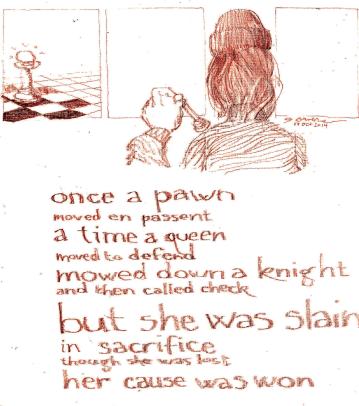 once a pawn
moved en passent
a time a queen
moved to defend
mowed down a knight
and then called check
but she was slain
in sacrifice
though she was lost
her cause was won